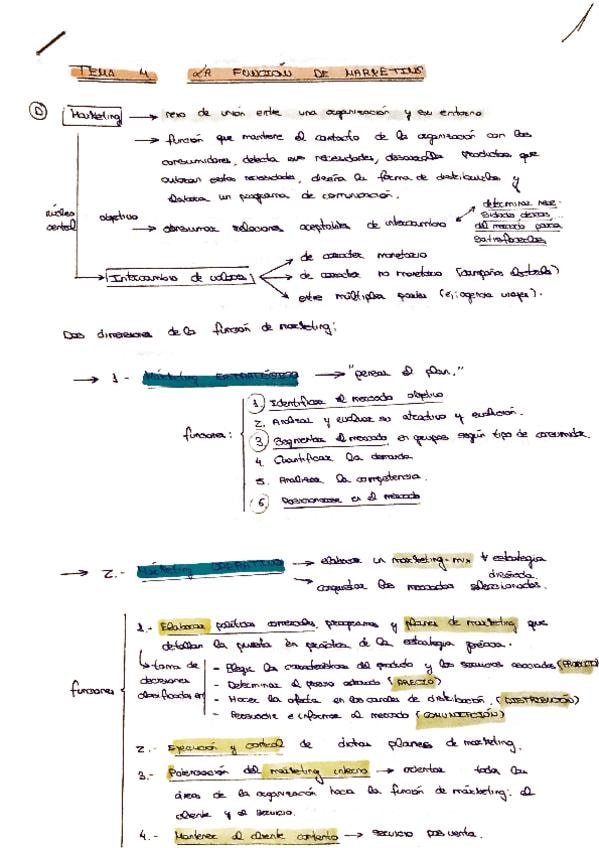 TEMA 4 LA FUNCIÓN DE MARKETING
① Marketing → nexo de unión entre una organización y su entorno
→ función que mantiene el contacto de la organización con los
consumidores, detecta sus necesidades, desarrolla productos que
cubran estas necesidades, diseña la forma de distribuirlos y
elabora un programa de comunicación.
núcleo central
objetivo → consumar relaciones aceptables de intercambio
determinar nece-
sidades
del mercado para
satisfacerlas
Intercambio de valores
de carácter monetario
de carácter no monetario (campaña
entre múltiples partes (ej: agencia viajes).
Dos dimensiones de la función de marketing:
→ 1.- Marketing ESTRATÉGICO → "pensar el plan."
funciones:
1. Identificar el mercado objetivo
2. Analizar y evaluar su atractivo y evolución.
3. Segmentar el mercado en grupos según tipo de consumidor.
4. Cuantificar la demanda
5. Analizar la competencia.
6. Posicionarse en el mercado
→ 2.- Marketing OPERATIVO → elaborar un marketing-mix y estrategia
diseñada.
→ conquistar los mercados seleccionados.
funciones
1.- Elaborar políticas comerciales, programas y planes de marketing que
detallan la puesta en práctica de la estrategia
toma de
decisiones
clasificadas en
- Elegir las características del producto y los servicios asociados (PRODUCTO)
- Determinar el precio adecuado (PRECIO)
- Hacer la oferta en los canales de distribución. (DISTRIBUCIÓN)
- Persuadir e informar al mercado (COMUNICACIÓN)
2.- Ejecución y control de dichos planes de marketing.
3.- Potenciación del marketing interno → orientar todas las
áreas de la organización hacia la función de marketing: el
cliente y el servicio.
4.- Mantener al cliente contento → servicio pos venta.